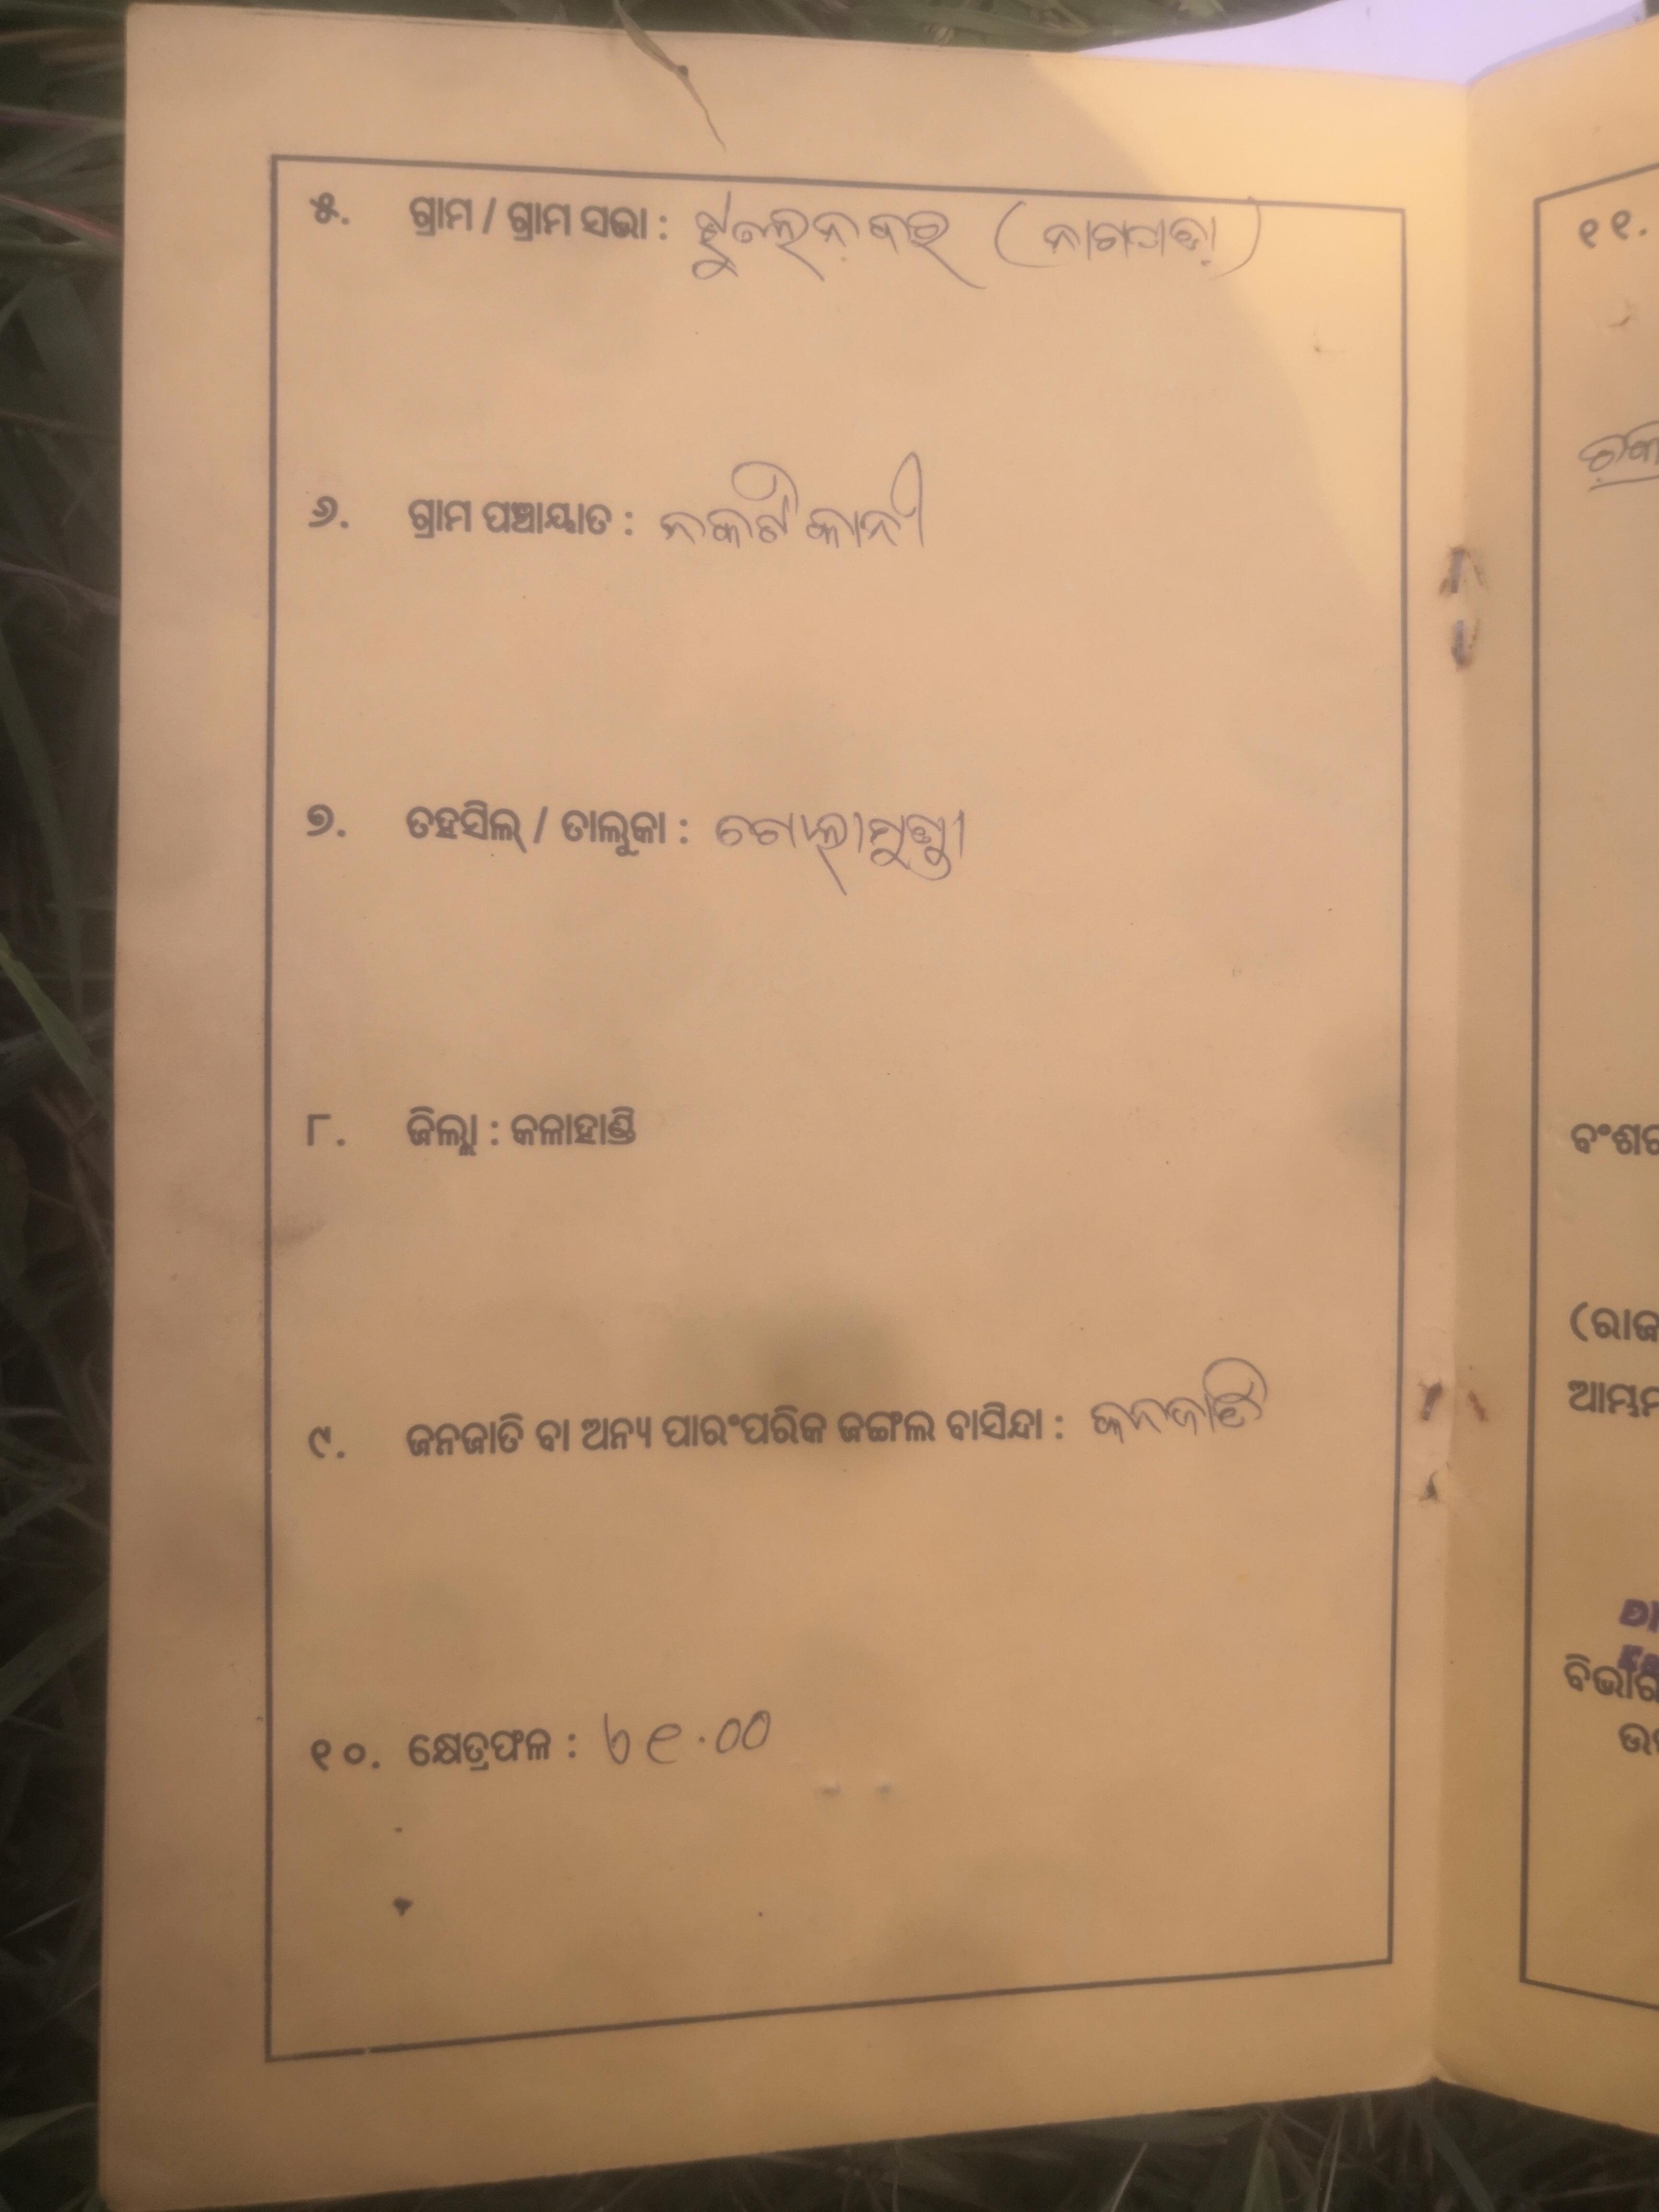 ୫. ଗ୍ରାମ / ଗ୍ରାମ ସଭା : ଝୁଲେନ୍‌ବର (ନାଗପଡ଼ା)
୬. ଗ୍ରାମ ପଞ୍ଚାୟାତ : ନକଟିକାନୀ
୭. ତହସିଲ୍ / ତାଲୁକା : ଗୋଲାମୁଣ୍ଡା
୮. ଜିଲ୍ଲା : କଳାହାଣ୍ଡି
୯. ଜନଜାତି ବା ଅନ୍ୟ ପାରଂପରିକ ଜଙ୍ଗଲ ବାସିନ୍ଦା : ଜନଜାତି
୧୦. କ୍ଷେତ୍ରଫଳ : ୭୧.୦୦
୧୧.
ବଂଶଗ
(ରାଜ
ଆମ୍ଭମ
ବିଭାଗ